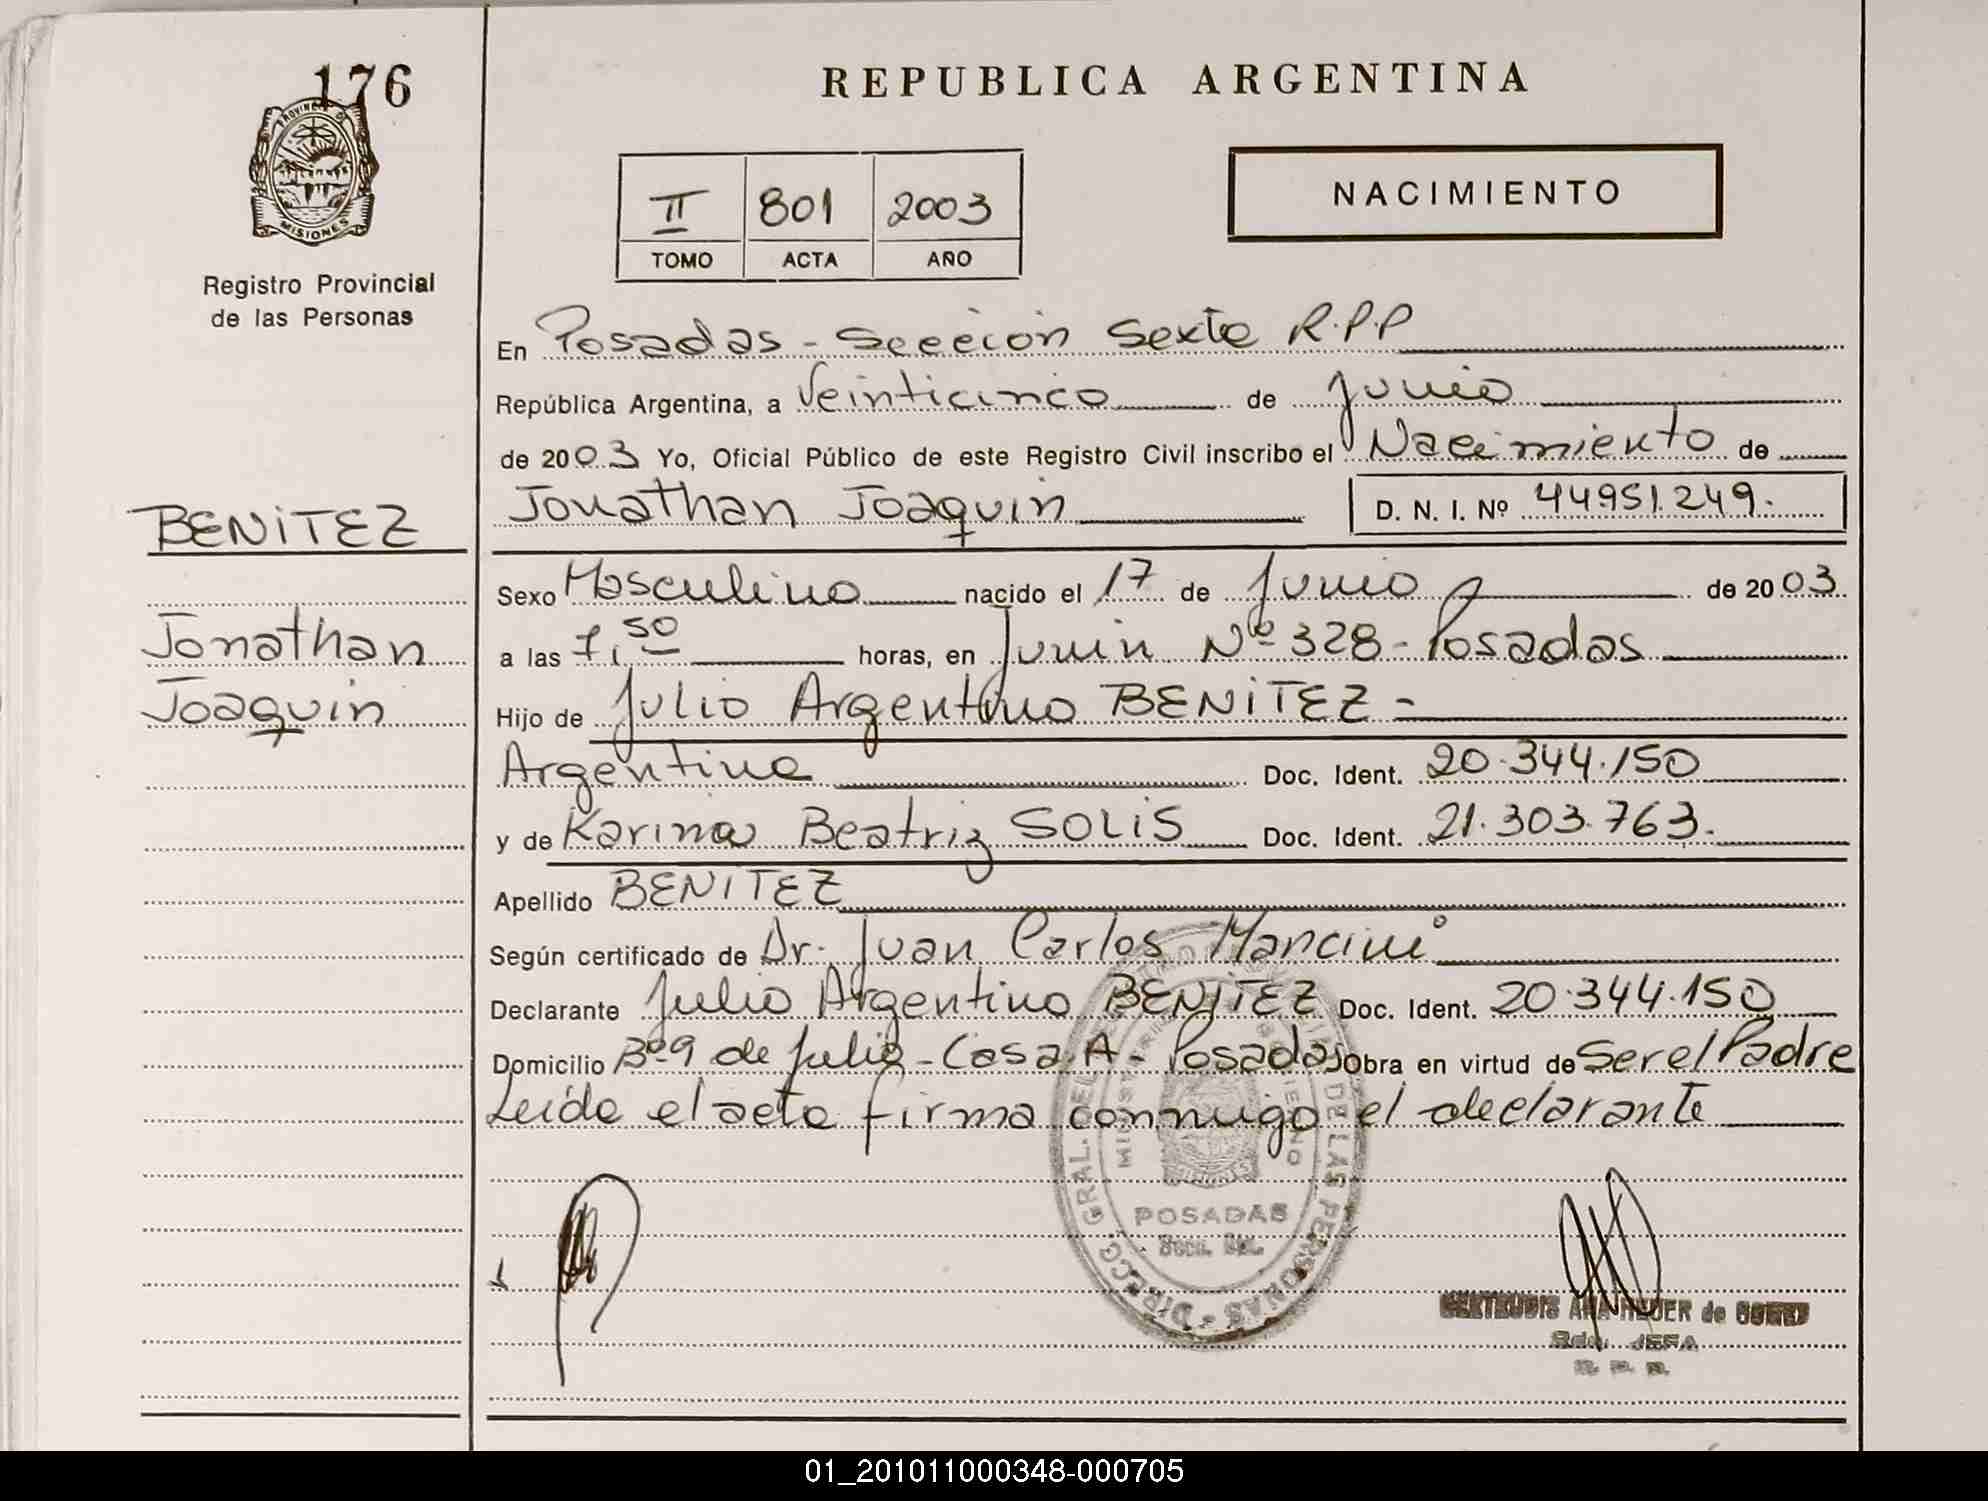 176
PROVINCIA DE
MISIONES
Registro Provincial
de las Personas
REPUBLICA ARGENTINA
II 801 2003
TOMO ACTA AÑO
NACIMIENTO
En Posadas - Sección Sexta R.P.P
República Argentina, a Veinticinco de Junio
de 2003 Yo, Oficial Público de este Registro Civil inscribo el Nacimiento de
Jonathan Joaquin D. N. I. Nº 44951.249.
BENITEZ
Jonathan
Joaquin
Sexo Masculino nacido el 17 de Junio de 2003
a las 7,50 horas, en Junin Nº 328 - Posadas
Hijo de Julio Argentino BENITEZ -
Argentina Doc. Ident. 20.344.150
y de Karina Beatriz SOLIS Doc. Ident. 21.303.763.
Apellido BENITEZ
Según certificado de Dr. Juan Carlos Mancini
Declarante Julio Argentino BENITEZ Doc. Ident. 20.344.150
Domicilio Bº 9 de Julio - Casa A - Posadas Obra en virtud de Ser el Padre
Leida el acta firma conmigo el declarante
DIRECC. GRAL. DEL DE LAS PERSONAS
POSADAS
GERTRUDIS ANA HEUER de GOMEZ
JEFA
01_201011000348-000705